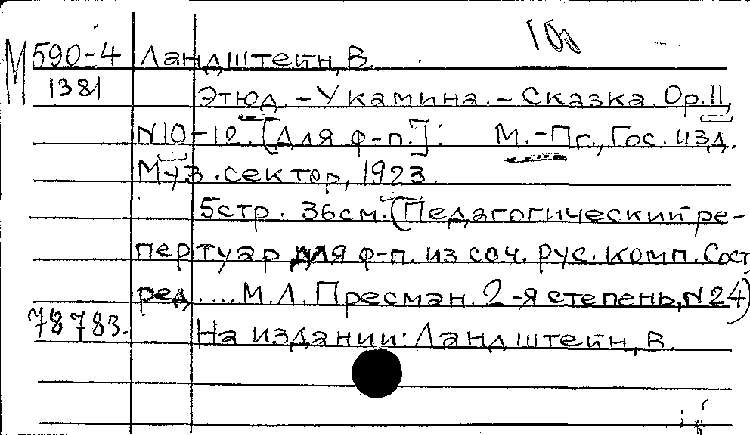 М 590-4 Ландштейн, В.
1381 Этюд. - У камина. - Сказка. Op. 11,
N 10-12. [Для ф-п.]: М.-Пг., Гос. изд.
Муз. сектор, 1923.
5 стр. 36 см. (Педагогический ре-
пертуар для ф-п. из соч. рус. комп. Сост.
ред .... М. Л. Пресман. 2-я степень, N 24)
78783. На издании: Ландштейн, В.